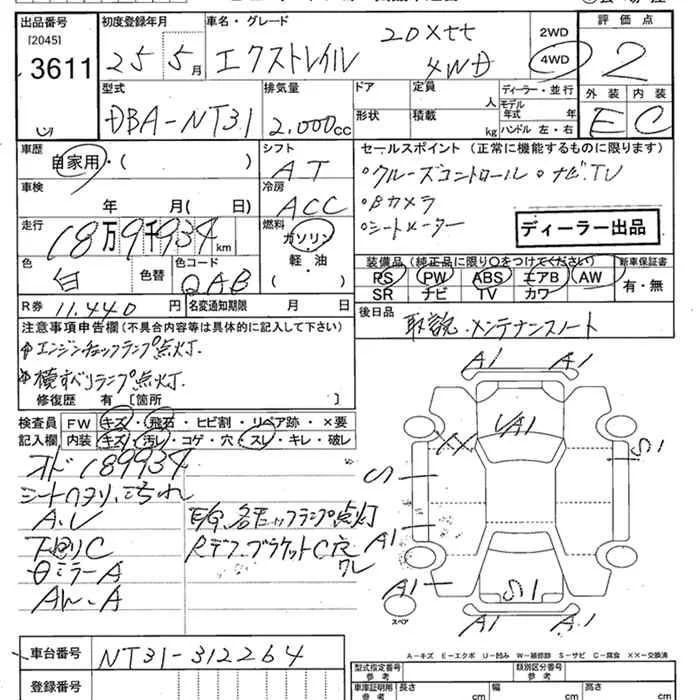 出品番号 初度登録年月 車名・グレード 評価点
[2045] 3611 25 5月 エクストレイル 20Xtt 4WD 2WD 4WD 2
外装 内装
E C
型式 排気量 ドア 定員 人 ディーラー・並行
DBA-NT31 2,000cc 形状 積載 kg モデル年式 年
ハンドル 左・右
車歴 自家用・( ) シフト AT
セールスポイント (正常に機能するものに限ります)
・クルーズコントロール ・ナビ.TV
・Bカメラ
・シートヒーター
ディーラー出品
車検 年 月( 日) 冷房 ACC
走行 18万9千934km 燃料 ガソリン 軽・油 ( )
色 白 色替 色コード QAB
装備品 (純正品に限り○をつけてください) 新車保証書
PS PW ABS エアB AW 有・無
SR ナビ TV カワ
R券 11.440円 名変通知期限 月 日
後日品 取説.メンテナンスノート
注意事項申告欄(不具合内容等は具体的に記入して下さい)
エンジンチェックランプ点灯.
横すべりランプ点灯.
修復歴 有[箇所 ]
検査員 FW キズ・飛石・ヒビ割・リペア跡・×要
記入欄 内装 キズ・汚レ・コゲ・穴・スレ・キレ・破レ
オド189934
A.V
下回りC
ミラーA
AW.A
E/G.各チェックランプ点灯
Rデフ.ブラケットC穴
A1 A1
XX
A1
S1
S
A1
A1
S1
A1 A1
スペア
A－キズ E－エクボ U－凹み W－補修跡 S－サビ C－腐食 ××－交換済
車台番号 NT31-312264
登録番号
型式指定番号 参考 類別区分番号 参考
車庫証明用 参考 長さ cm 幅 cm 高さ cm